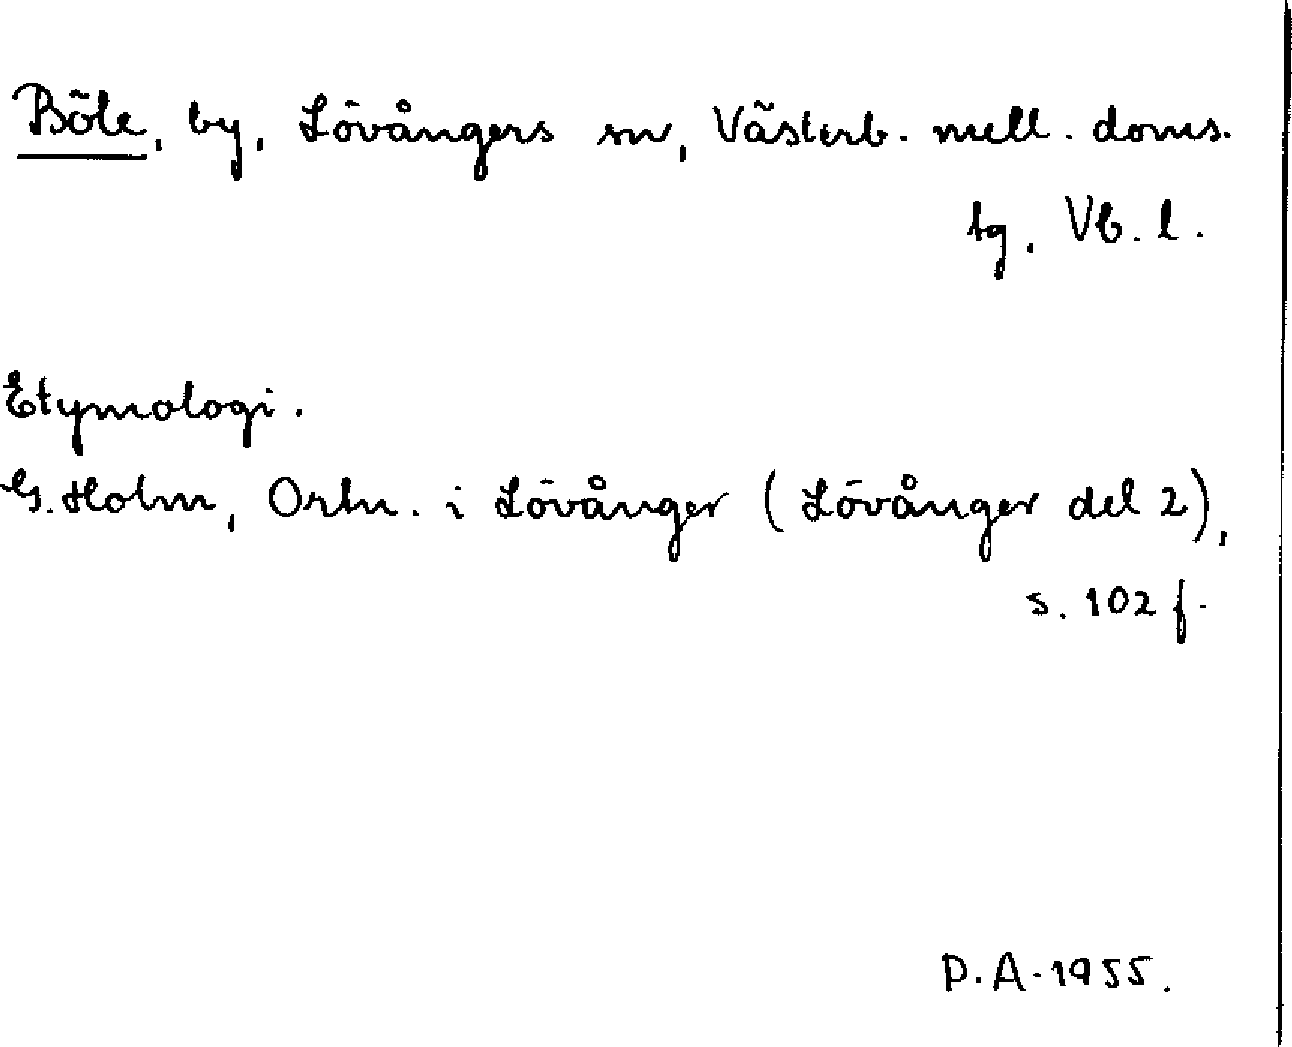 Böle, by, Lövångers sn, Västerb. mell. doms.
tg, Vb. l.
Etymologi.
G. Holm, Ortn. i Lövånger (Lövånger del 2),
s. 102 f.
D.A. 1955.